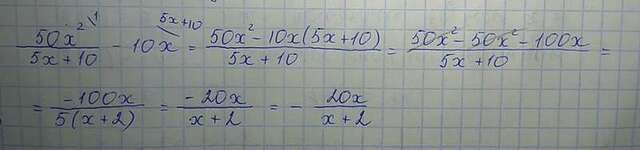 50x² \1 / 5x + 10 - 10x \5x+10 = 50x² - 10x(5x+10) / 5x + 10 = 50x² - 50x² - 100x / 5x + 10 =
= -100x / 5(x+2) = -20x / x + 2 = - 20x / x + 2